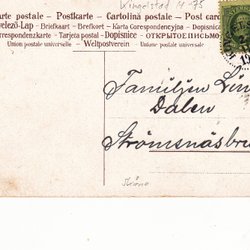 arte postale - Postkarte - Cartolina postale - Post card
evelező-Lap - Briefkaart - Brefkort - Karta Korespondencyjna - Dopisnice
orrespondenzkarte - Tarjeta postal - Dopisnice - ОТКРЫТОЕ ПИСЬМО
Union postale universelle - Weltpostverein - Union postale universelle
Familjen Lin
Dalen
Strömsnäsbru